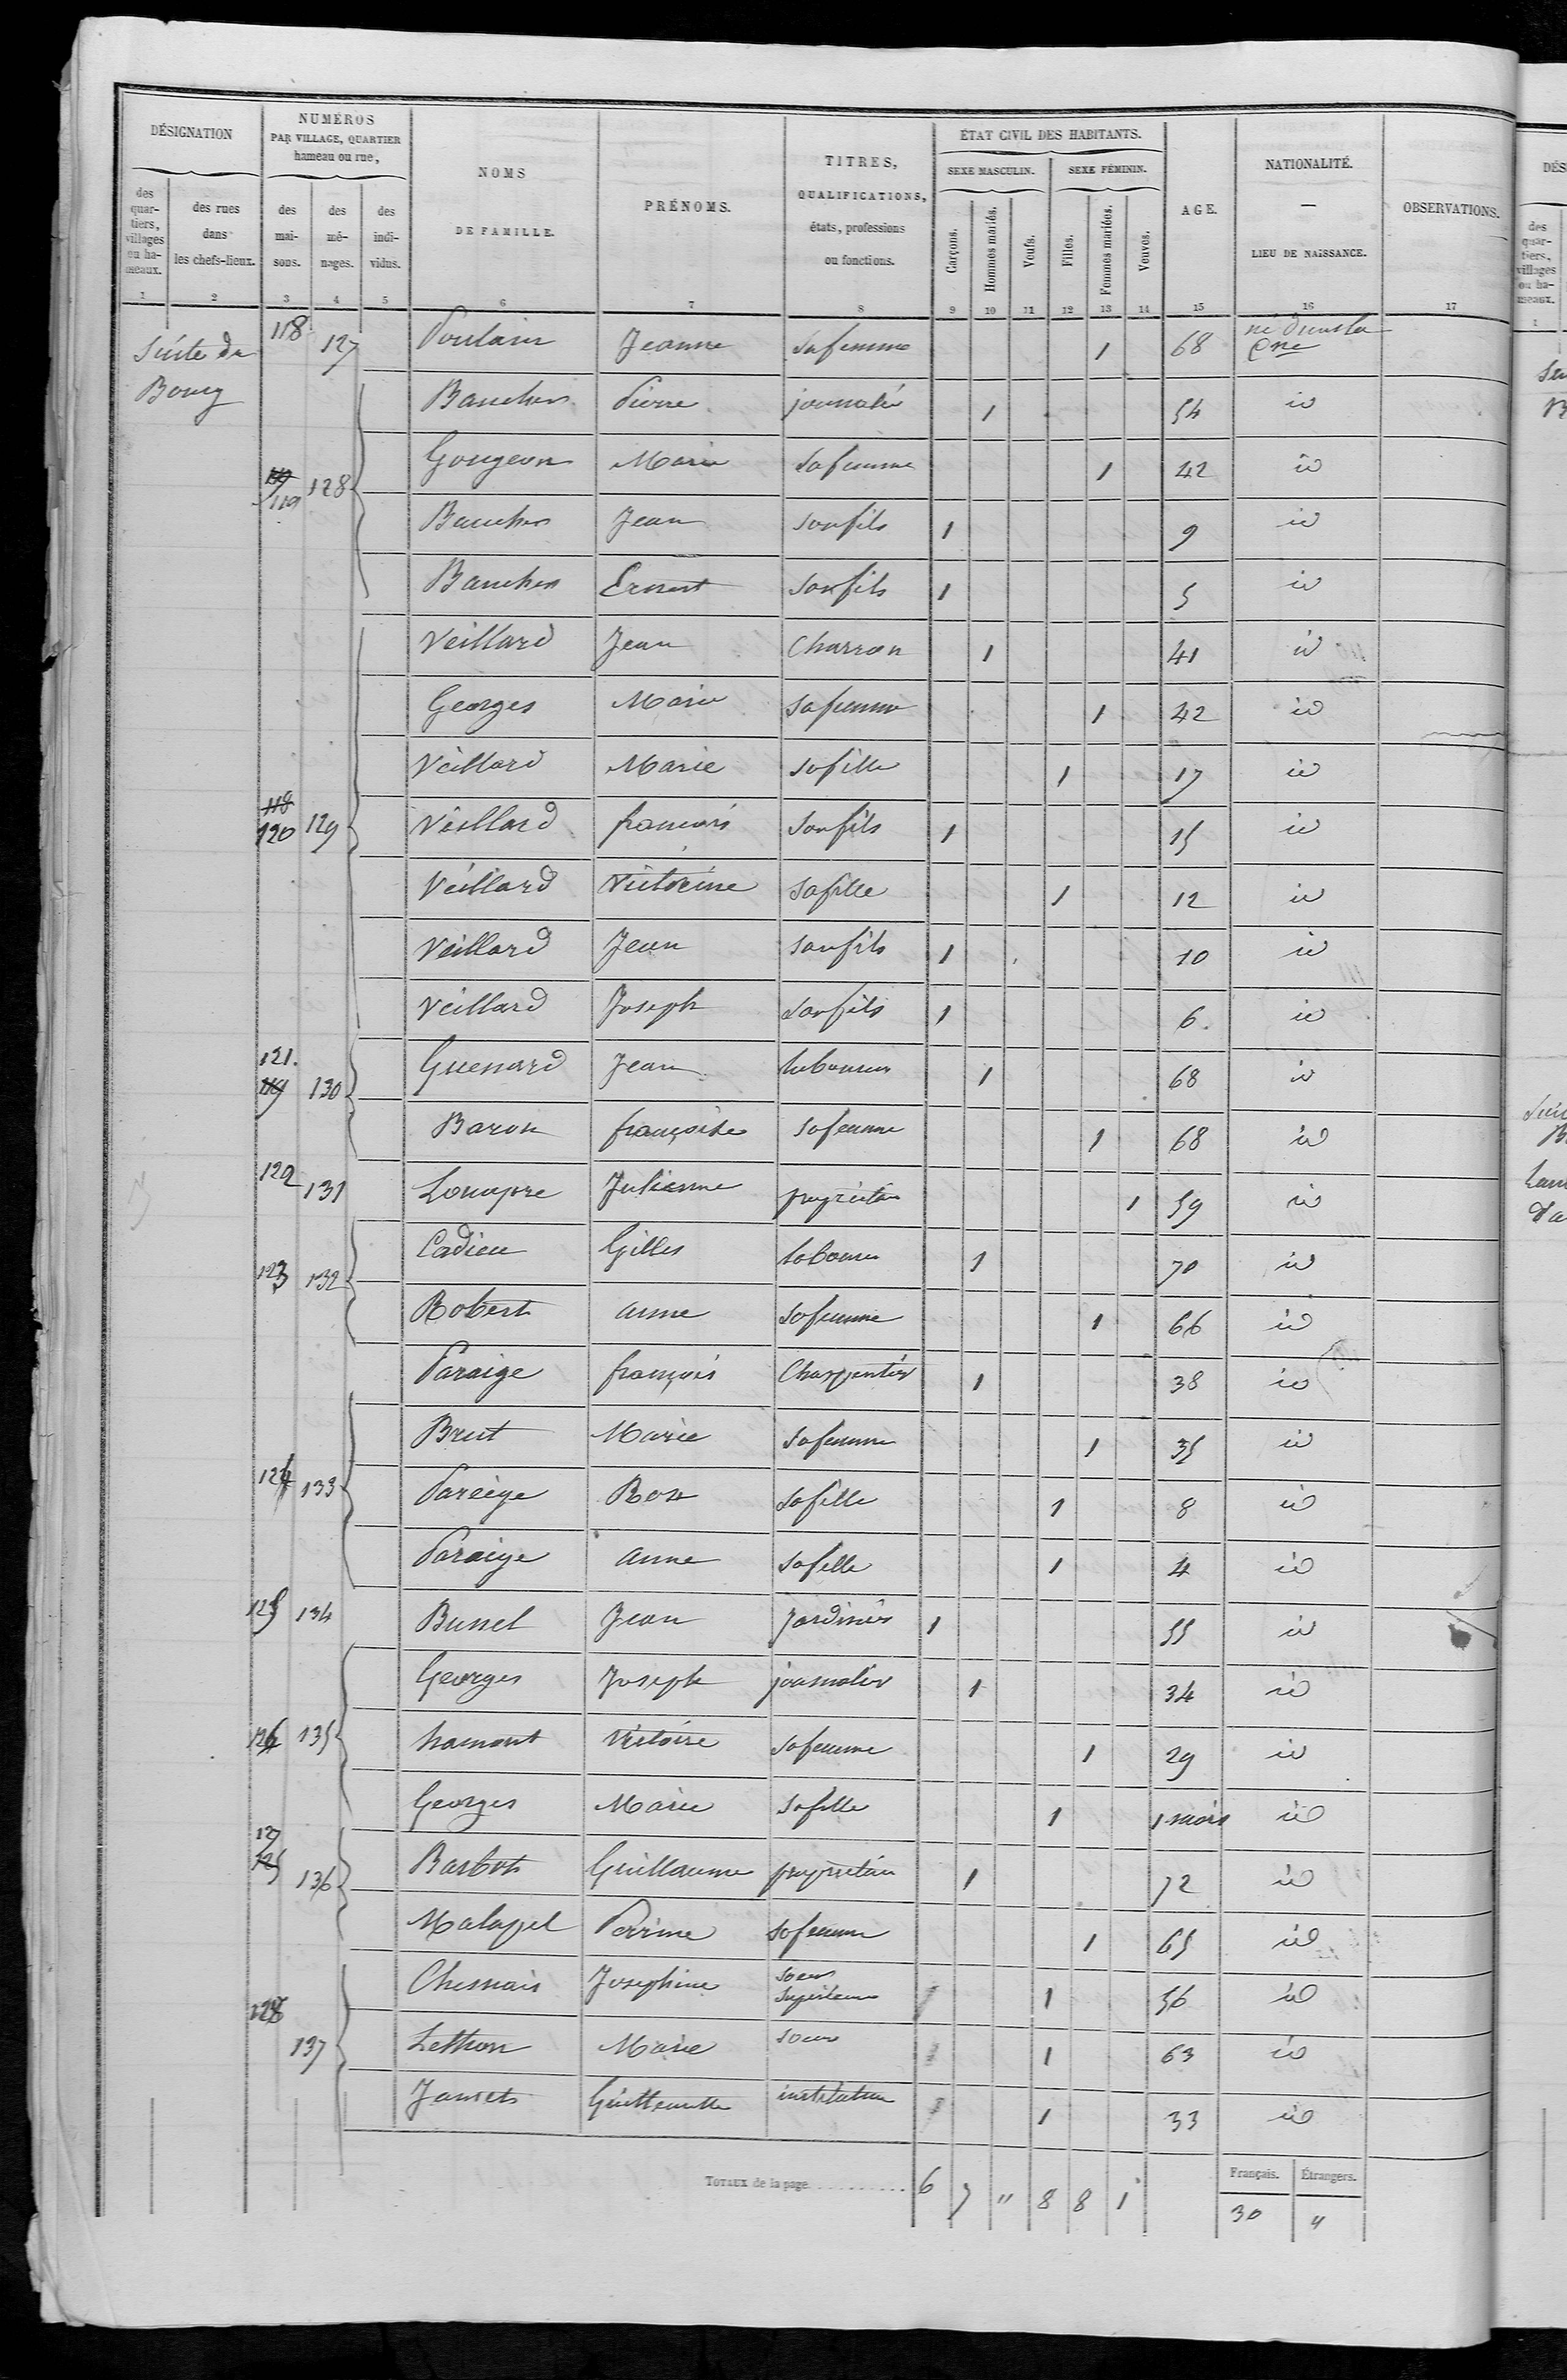 DÉSIGNATION
NUMÉROS
PAR VILLAGE, QUARTIER
hameau ou rue,
NOMS
DE FAMILLE.
PRÉNOMS.
TITRES,
QUALIFICATIONS,
états, professions
ou fonctions.
ÉTAT CIVIL DES HABITANTS.
SEXE MASCULIN. SEXE FÉMININ.
AGE.
NATIONALITÉ.
—
LIEU DE NAISSANCE.
OBSERVATIONS.
des quartiers, villages ou hameaux.
des rues dans les chefs-lieux.
des maisons.
des ménages.
des individus.
Garçons. Hommes mariés. Veufs. Filles. Femmes mariées. Veuves.
1 2 3 4 5 6 7 8 9 10 11 12 13 14 15 16 17
Suite du Bourg
118 127 Poulain Jeanne sa femme 1 68 né dans la Cne
Baucher Pierre journalier 1 54 id
119 128 Gougeon Marie sa femme 1 42 id
Baucher Jean son fils 1 9 id
Baucher Ernest son fils 1 5 id
Veillard Jean Charron 1 41 id
Georges Marie sa femme 1 42 id
Veillard Marie sa fille 1 17 id
118 120 129 Veillard françois son fils 1 15 id
Veillard Victorine sa fille 1 12 id
Veillard Jean son fils 1 10 id
Veillard Joseph son fils 1 6 id
121 119 130 Guenard Jean laboureur 1 68 id
Baron françoise sa femme 1 68 id
122 131 Louapre Julienne propriétaire 1 59 id
123 132 Cadieu Gilles laboureur 1 70 id
Robert anne sa femme 1 66 id
Paraige françois Charpentier 1 38 id
Brut Marie sa femme 1 35 id
124 133 Paraige Rose sa fille 1 8 id
Paraige anne sa fille 1 4 id
125 134 Bunel Jean Jardinier 1 55 id
Georges Joseph journalier 1 34 id
126 135 hamont Victoire sa femme 1 29 id
Georges Marie sa fille 1 1 mois id
127 125 136 Barbot Guillaume propriétaire 1 72 id
Malapel Perrine sa femme 1 65 id
Chesnais Josephine soeur Supérieure 1 56 id
128 137 Lethon Marie soeur 1 63 id
Guillemette institutrice 1 33 id
TOTAUX de la page 6 7 " 8 8 1
Français. Étrangers.
30 "